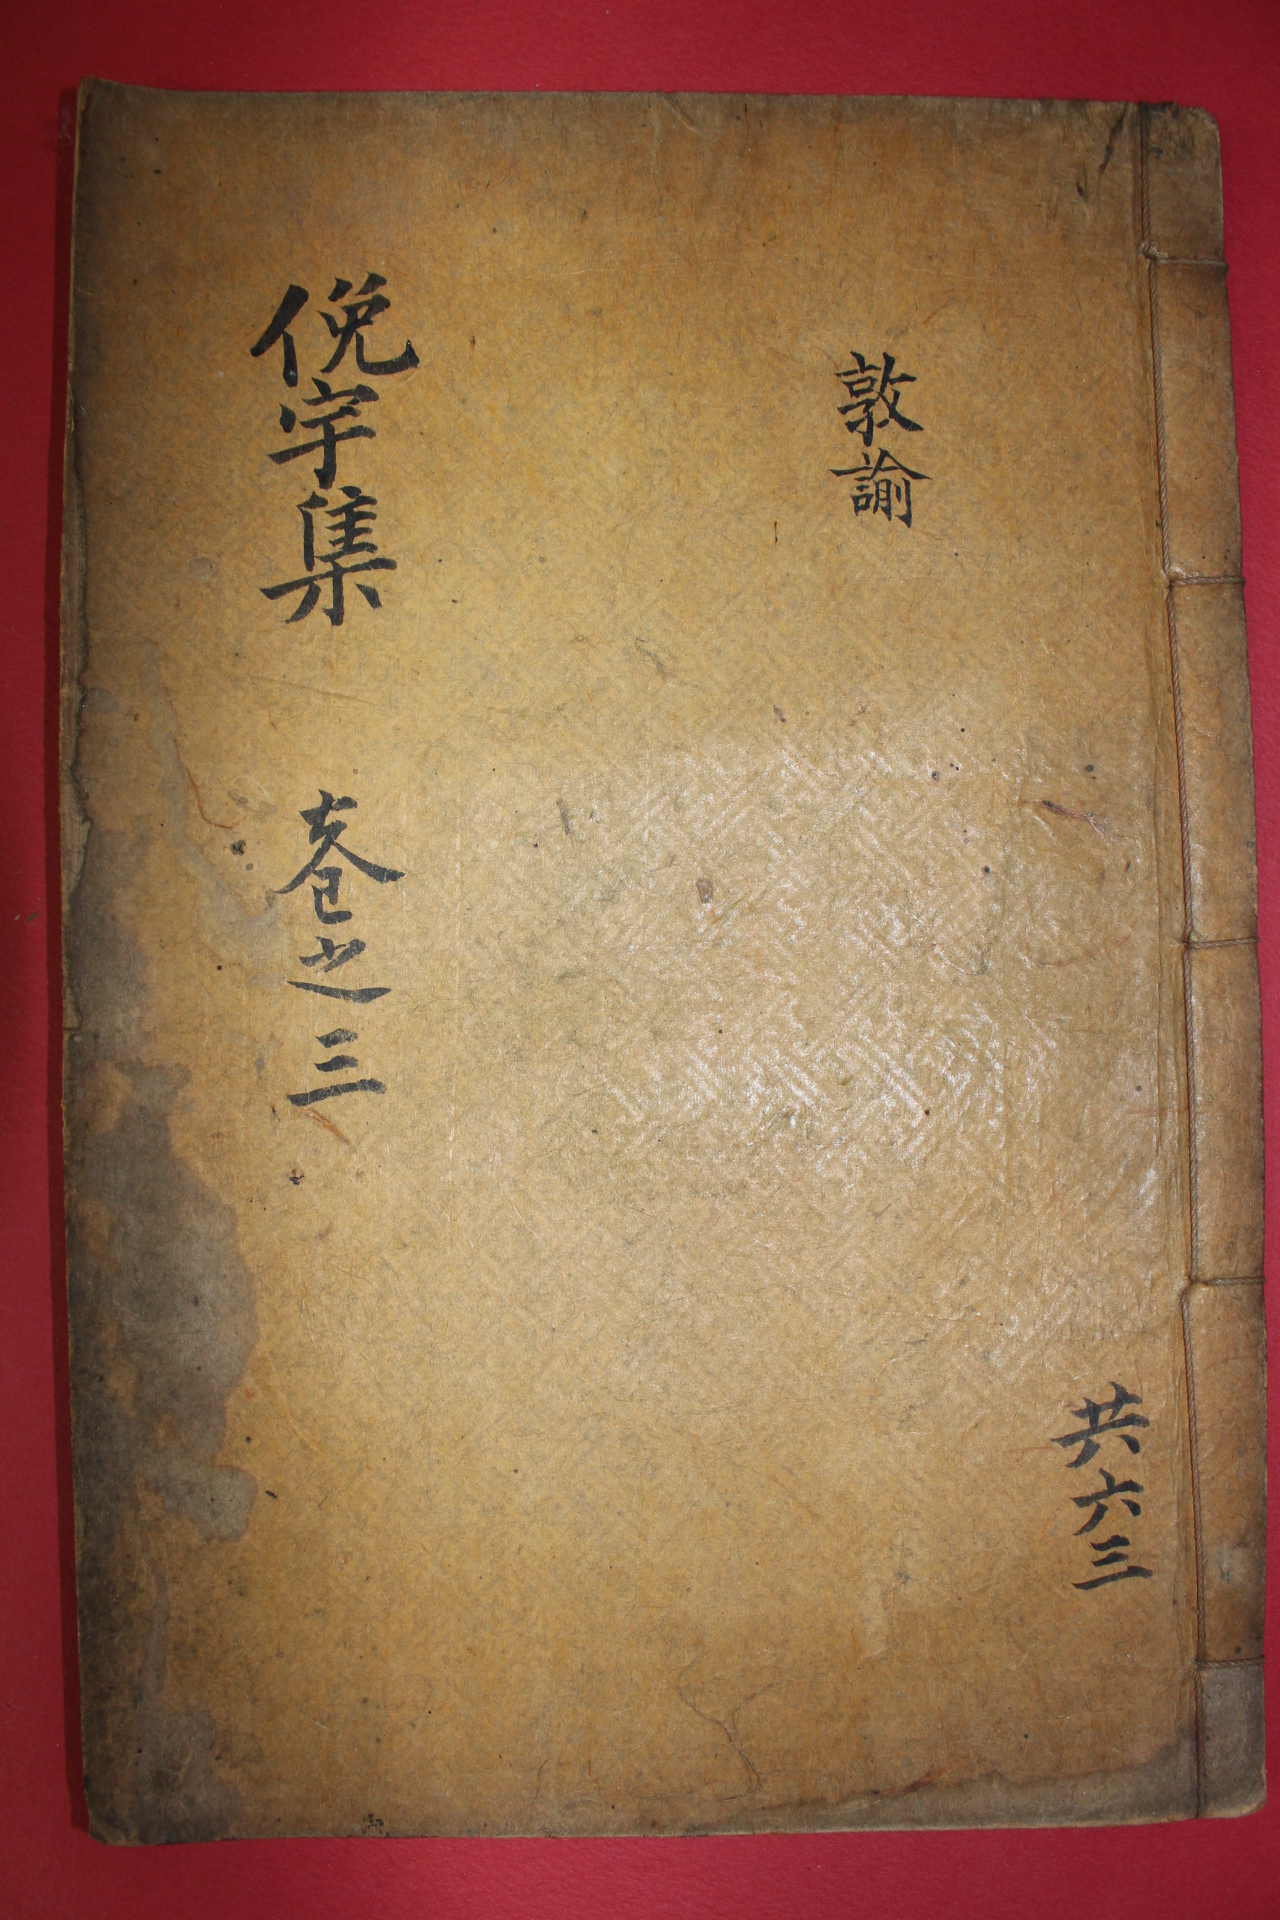 敦諭
俛宇集 卷之三
共六三